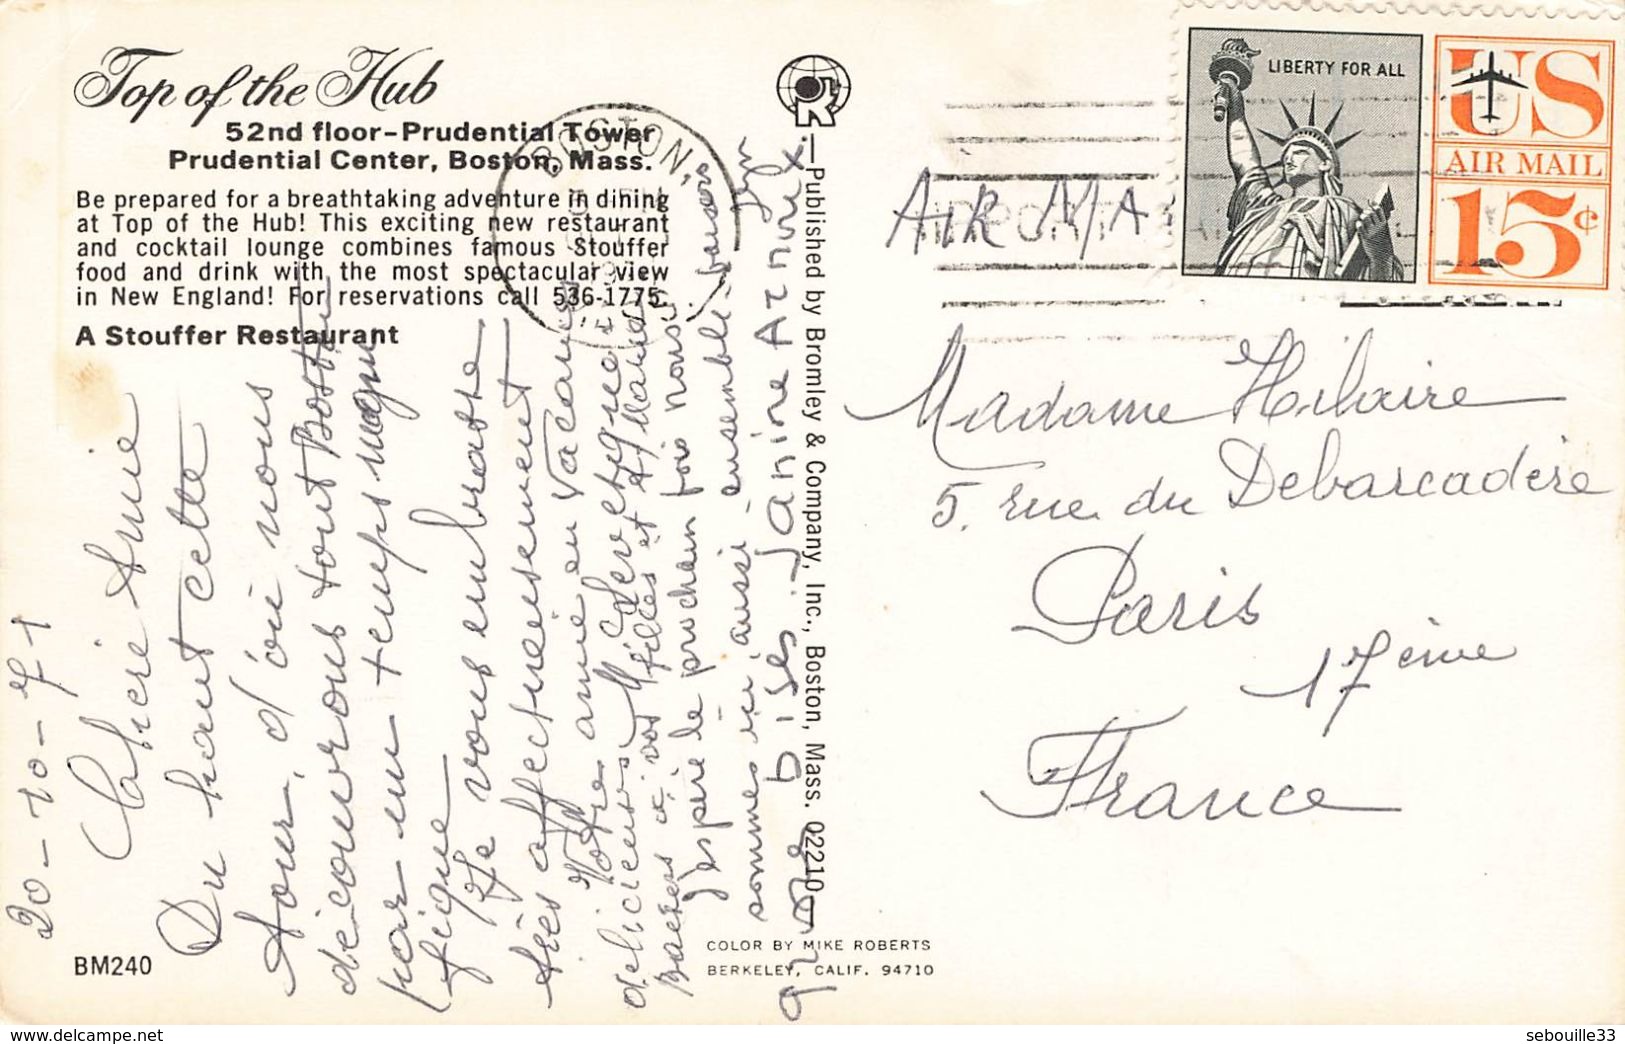 Top of the Hub
52nd floor-Prudential Tower
Prudential Center, Boston, Mass.
Be prepared for a breathtaking adventure in dining
at Top of the Hub! This exciting new restaurant
and cocktail lounge combines famous Stouffer
food and drink with the most spectacular view
in New England! For reservations call 536-1775.
A Stouffer Restaurant
BM240
20-10-71
Chère Amie
Du haut cette
tour, d'où nous
découvrons tout Boston
par un temps magni
fique
Je vous embrasse
très affectueusement
Votre amie en vacances
délicieuses
Baisers à vos filles et
J'espère le prochain fois nous
sommes ici, aussi ensemble - baisers
gros bises Janine Aznour
BOSTON,
—Published by Bromley & Company, Inc., Boston, Mass. 02210—
COLOR BY MIKE ROBERTS
BERKELEY, CALIF. 94710
LIBERTY FOR ALL
US
AIR MAIL
15¢
AIR MA
Madame Hilaire
5. rue du Debarcadère
Paris
17ème
France
www.delcampe.net
sebouille33